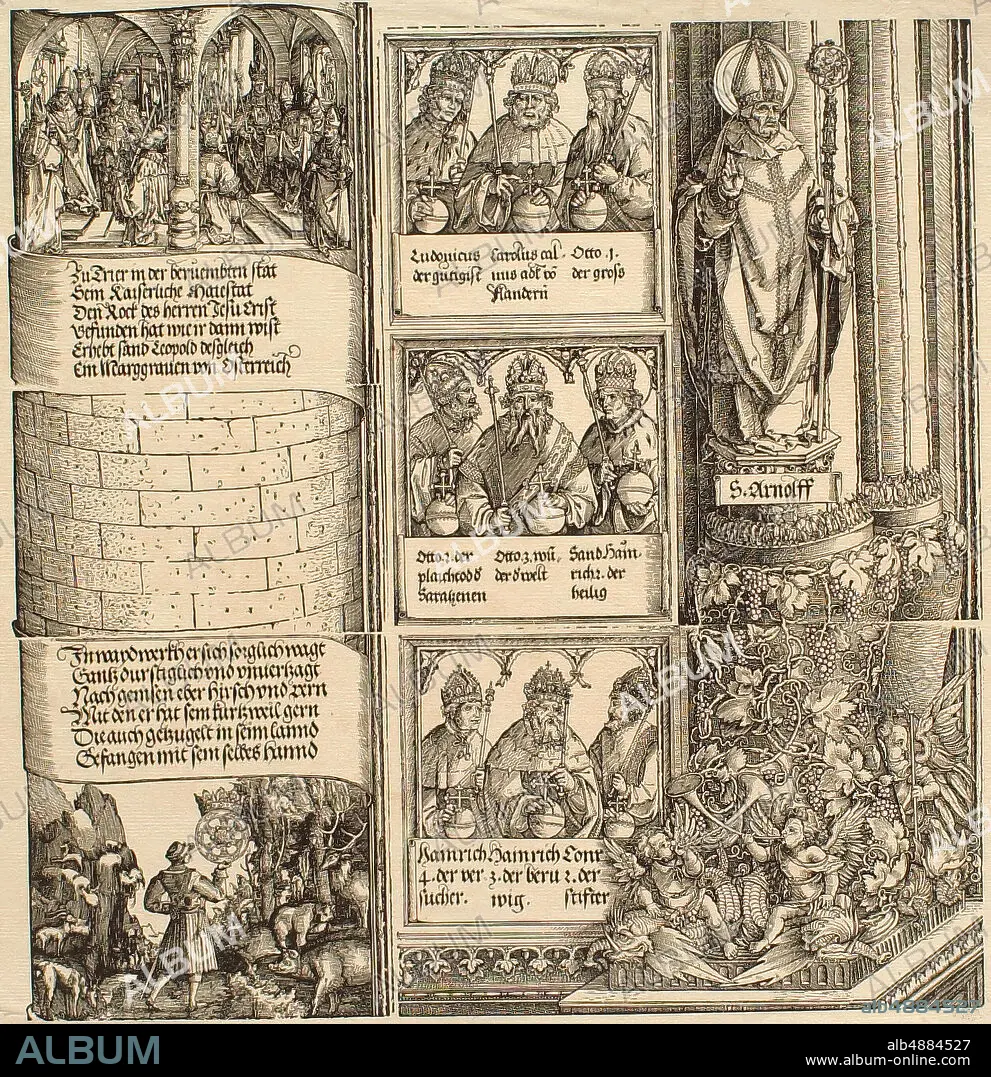 Zu Trier in der beruembten stat
Sein Kaiserliche Maiestat
Den Rock des herren Jesu Crist
Gefunden hat wie ir dann wist
Erhebt sand Leopold desgleich
Ein Marggrauen von Osterreich
Ludovicus Carolus cal- Otto .1.
der gutigist uus der groß
Flandern
S. Arnolff
Otto 2. der Otto 3. Sand Hain-
der welt rich 2. der
Saratzenen heilig
In waydwerkh er sich sorglich wagt
Gantz durstiglich und unuertzagt
Nach gemsen eber hirsch und
Mit den er hat sein kurtzweil gern
Die auch getzugelt in seim lannd
Gefangen mit sein selbes hannd
Hainrich Hainrich Conr
4. der ver 3. der beru 2. der
sucher. wig. stifter
ALBUM
alb4884527
ALBUM
alb4884527
www.album-online.com